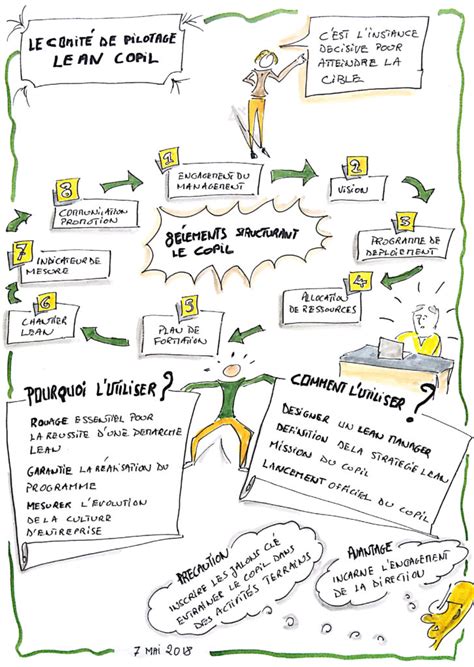 LE COMITÉ DE PILOTAGE
LEAN COPIL
C'EST L'INSTANCE
DECISIVE POUR
ATTEINDRE LA
CIBLE
1
ENGAGEMENT DU
MANAGEMENT
2
VISION
3
PROGRAMME DE
DEPLOIEMENT
4
ALLOCATION
DE RESSOURCES
5
PLAN DE
FORMATION
6
CHANTIER
LEAN
7
INDICATEUR DE
MESURE
8
COMMUNICATION
PROMOTION
8 ELEMENTS STRUCTURANT
LE COPIL
POURQUOI L'UTILISER ?
ROUAGE ESSENTIEL POUR
LA REUSSITE D'UNE DEMARCHE
LEAN
GARANTIE LA RÉALISATION DU
PROGRAMME
MESURER L'EVOLUTION
DE LA CULTURE
D'ENTREPRISE
COMMENT L'UTILISER ?
DESIGNER UN LEAN MANAGER
DEFINITION DE LA STRATEGIE LEAN
MISSION DU COPIL
LANCEMENT OFFICIEL DU COPIL
PRECAUTION
INSCRIRE LES JALONS CLÉ
ENTRAINER LE COPIL DANS
DES ACTIVITÉS TERRAINS
AVANTAGE
INCARNE L'ENGAGEMENT
DE LA DIRECTION
7 MAI 2018